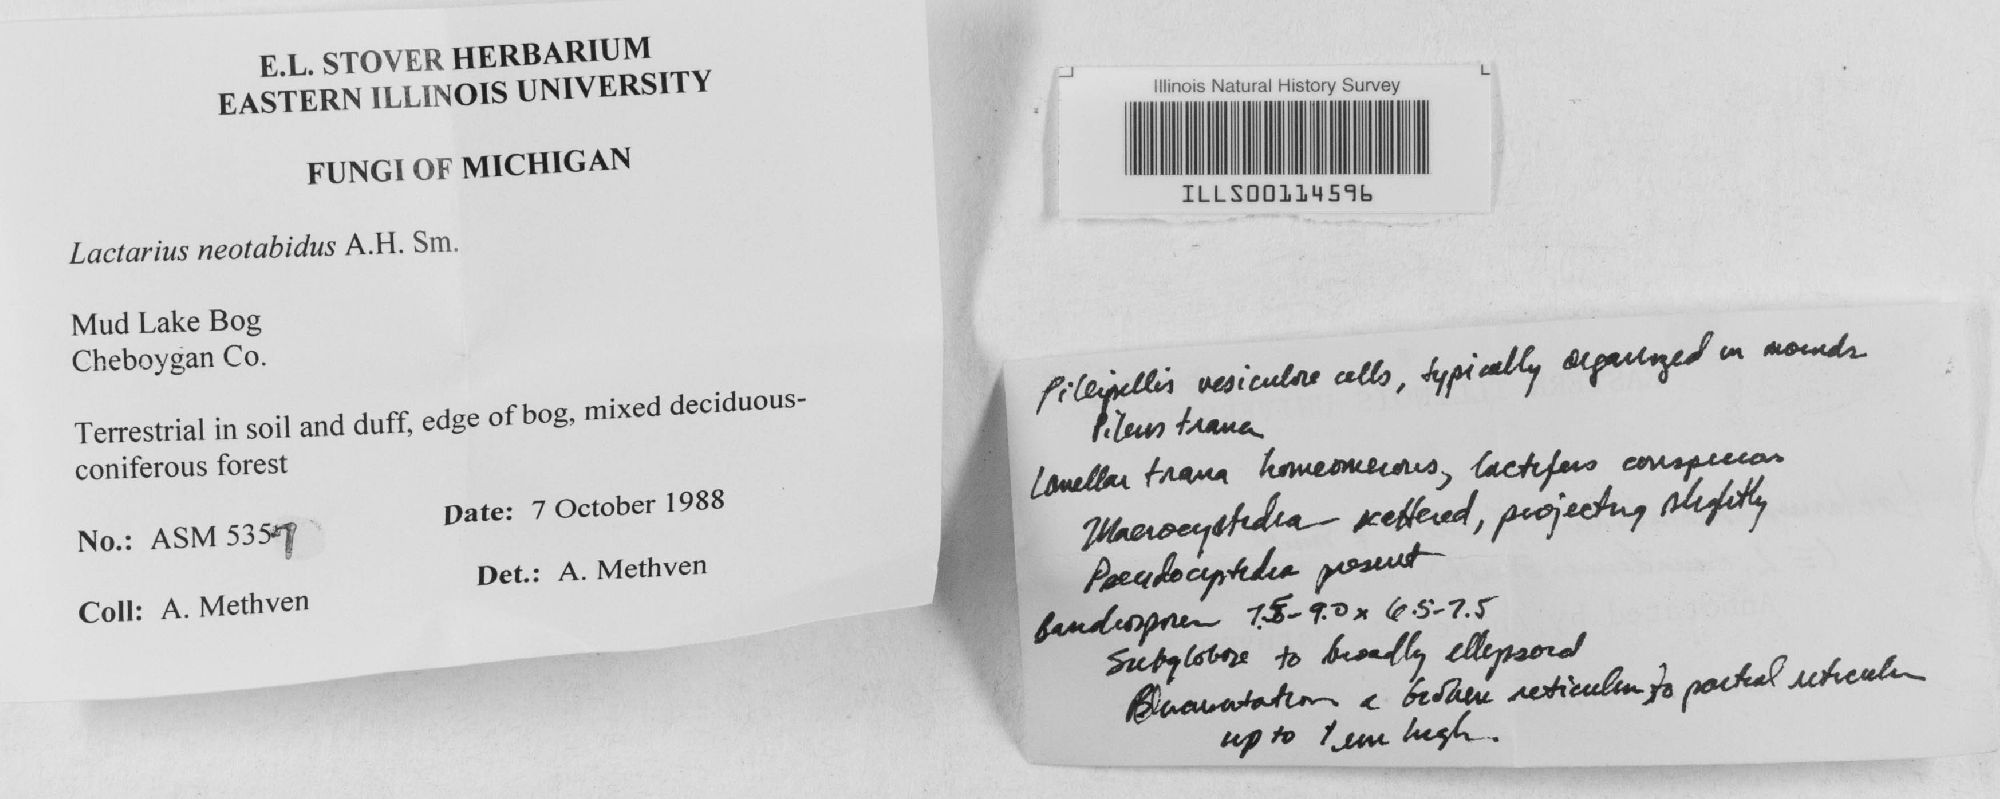 E.L. STOVER HERBARIUM
EASTERN ILLINOIS UNIVERSITY
FUNGI OF MICHIGAN
Lactarius neotabidus A.H. Sm.
Mud Lake Bog
Cheboygan Co.
Terrestrial in soil and duff, edge of bog, mixed deciduous-
coniferous forest
No.: ASM 5357
Date: 7 October 1988
Det.: A. Methven
Coll: A. Methven
Illinois Natural History Survey
ILLS00114596
Pileipellis vesiculose cells, typically organized in mounds
Pileus trama
Lamellar trama homeomerous, lactifers conspicuous
Macrocystidia – scattered, projecting slightly
Pseudocystidia present
Basidiospores 7.5-9.0 x 6.5-7.5
Subglobose to broadly ellipsoid
Ornamentation a broken reticulum to partial reticulum
up to 1 um high.